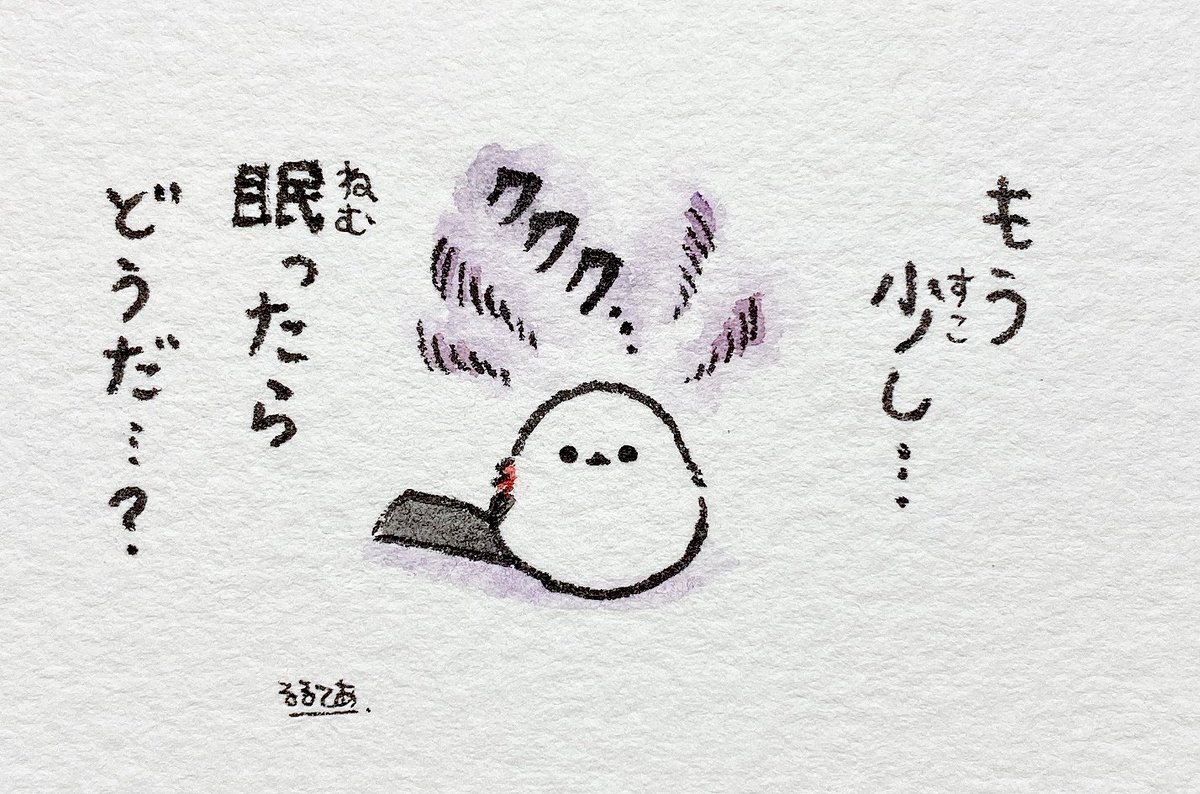 もう
少し…
ククク…
眠ったら
どうだ…?
るるてあ.